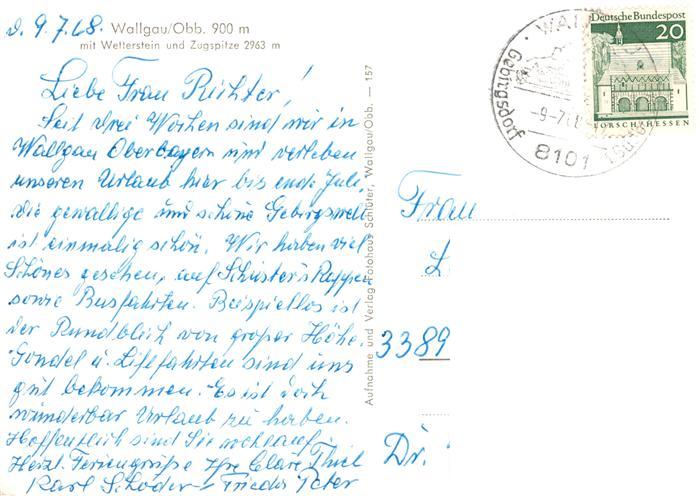 d. 9.7.68. Wallgau/Obb. 900 m
mit Wetterstein und Zugspitze 2963 m
Liebe Frau Richter!
Seit drei Wochen sind wir in
Wallgau Oberbayern und verleben
unseren Urlaub hier bis ende Juli,
die gewaltige und schöne Gebirgswelt
ist einmalig schön. Wir haben viel
Schönes gesehen, auf Schuster's Rappen
sowie Busfahrten. Beispiellos ist
der Rundblick von großer Höhe.
Gondel u. Liftfahrten sind uns
gut bekommen. Es ist doch
wunderbar Urlaub zu haben.
Hoffentlich sind Sie wohlauf.
Herzl. Feriengrüße Ihre Cläre Thiel
Karl Schöder - Frieder Peter
Aufnahme und Verlag Fotohaus Schlüter, Wallgau/Obb. — 157
Deutsche Bundespost
20
LORSCH/HESSEN
Gebirgsdorf
8101
Frau
L
3389
Dr.